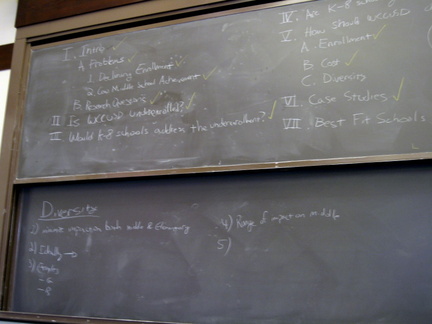 I. Intro
A. Problems
1. Declining Enrollment
2. Low Middle School Achievement
B. Research Questions
II Is WCCUSD underenrolled?
II Would K-8 schools address the underenrollment?
IV. Are K-8
V. How should WCCUSD
A. Enrollment
B. Cost
C. Diversity
VI. Case Studies
VII. Best Fit Schools
Diversity
1) impact on both middle & Elementary
2)
3)
4) Range of impact on middle
5)